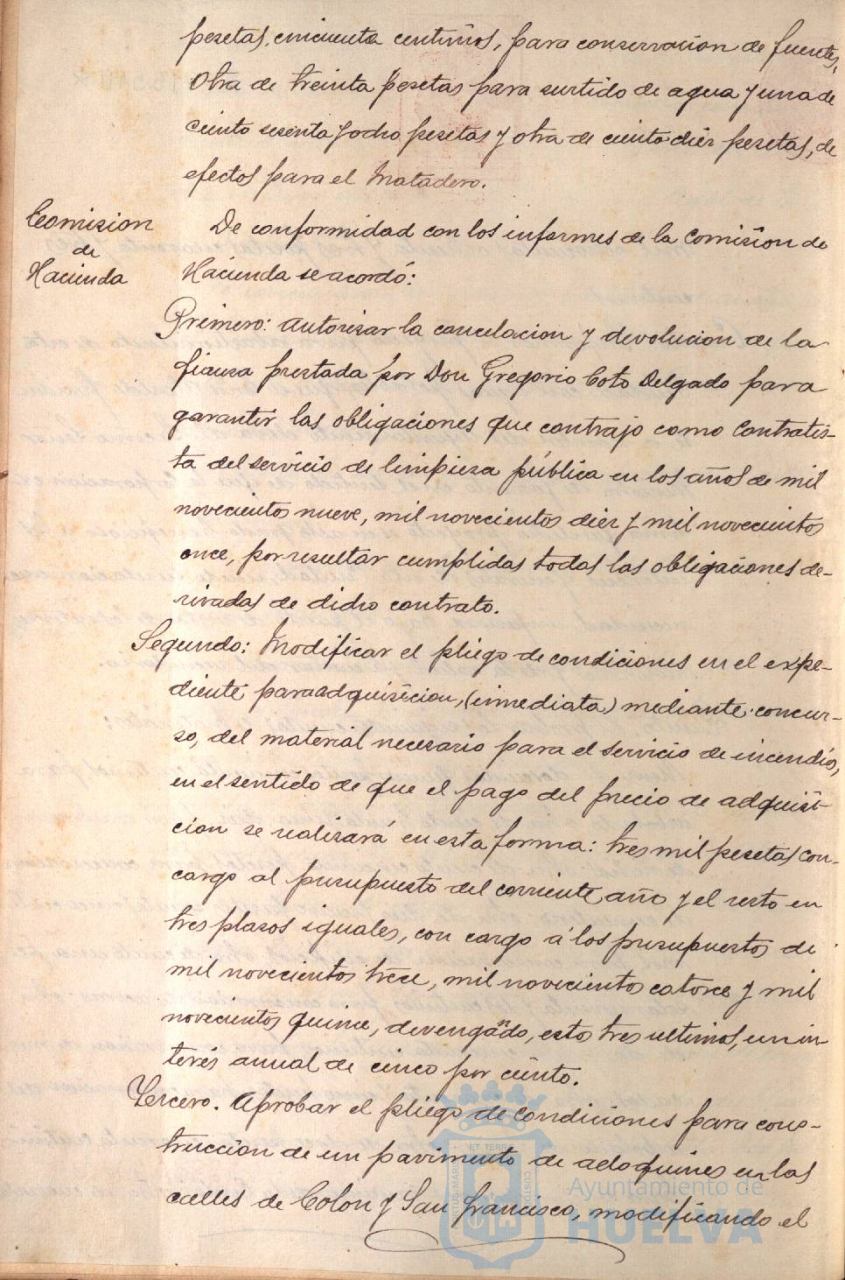 pesetas, cincuenta centimos, para conservacion de fuentes.
Otra de treinta pesetas para surtido de agua y una de
ciento sesenta y ocho pesetas y otra de ciento diez pesetas, de
efectos para el Matadero.
Comision
de
Hacienda
De conformidad con los informes de la Comision de
Hacienda se acordó:
Primero: Autorizar la cancelacion y devolucion de la
fianza prestada por Don Gregorio Coto Delgado para
garantir las obligaciones que contrajo como Contratis-
ta del servicio de limpieza pública en los años de mil
novecientos nueve, mil novecientos diez y mil novecientos
once, por resultar cumplidas todas las obligaciones de-
rivadas de dicho contrato.
Segundo: Modificar el pliego de condiciones en el expe-
diente para adquisicion, (inmediata) mediante concur-
so, del material necesario para el servicio de incendio,
en el sentido de que el pago del precio de adquisi-
cion se realizará en esta forma: tres mil pesetas con
cargo al presupuesto del corriente año y el resto en
tres plazos iguales, con cargo á los presupuestos de
mil novecientos trece, mil novecientos catorce y mil
novecientos quince, devengando, estos tres ultimos, un in-
terés anual de cinco por ciento.
Tercero. Aprobar el pliego de condiciones para cons-
truccion de un pavimento de adoquines en las
calles de Colon y San Francisco, modificando el
Ayuntamiento de
HUELVA